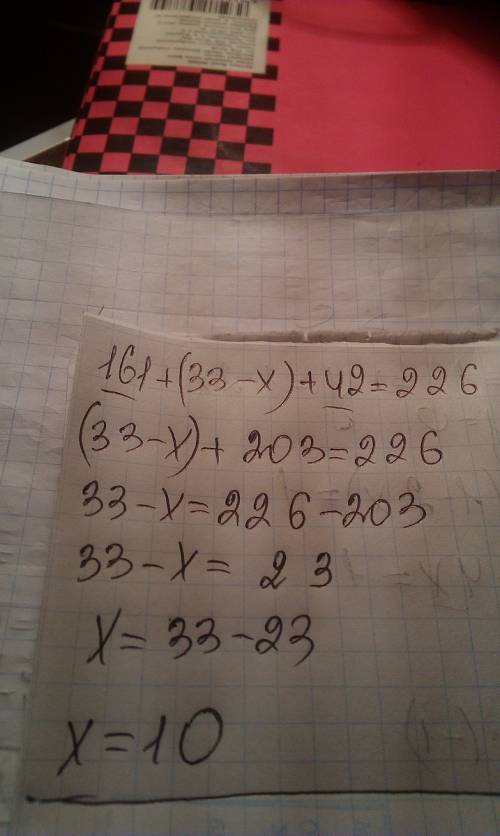 161+(33-x)+42=226
(33-x)+203=226
33-x=226-203
33-x= 23
x=33-23
x=10